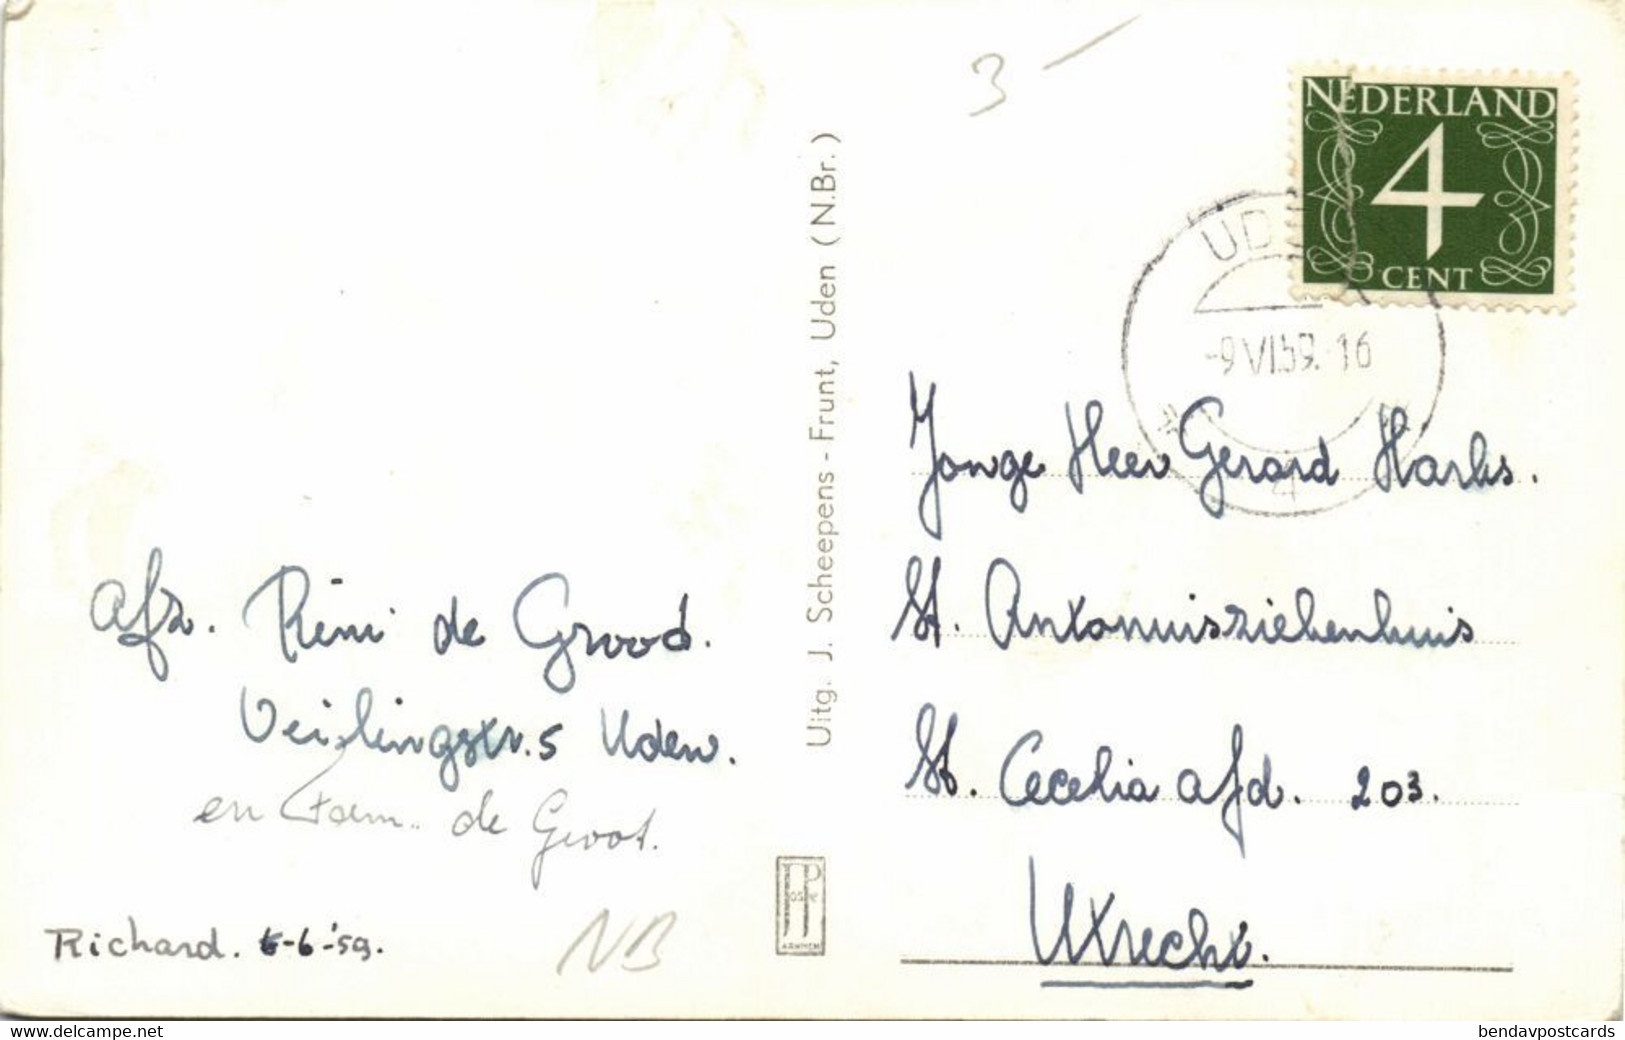 3 -
NEDERLAND
4
CENT
UDEN
-9 VI.59.16
4
afz. Rini de Grood.
Veilingstr. 5 Uden.
en Fam. de Groot.
Richard. 6-6-'59.
NB
Uitg. J. Scheepens - Frunt, Uden (N.Br.)
JosPe
ARNHEM
Jonge Heer Gerard Harks.
St. Antonuisziekenhuis
St. Cecelia afd. 203.
Utrecht.
www.delcampe.net
bendavpostcards